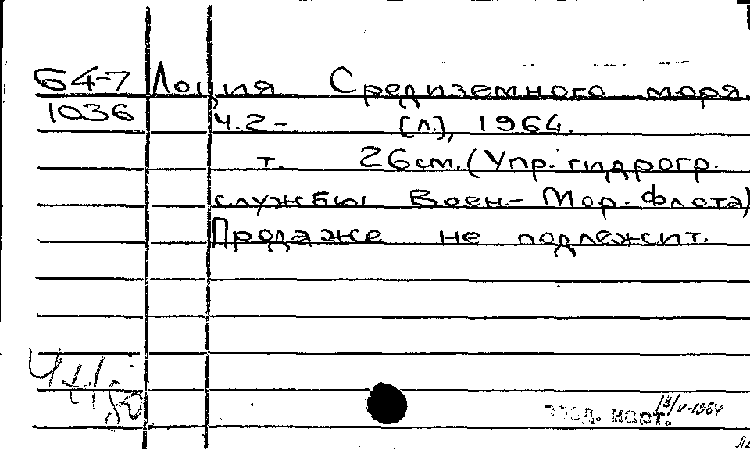 Б4-7 Лоция Средиземного моря.
1036 Ч.2- [Л.], 1964.
т. 26см. (Упр. гидрогр.
службы Воен-Мор. Флота)
Продаже не подлежит.